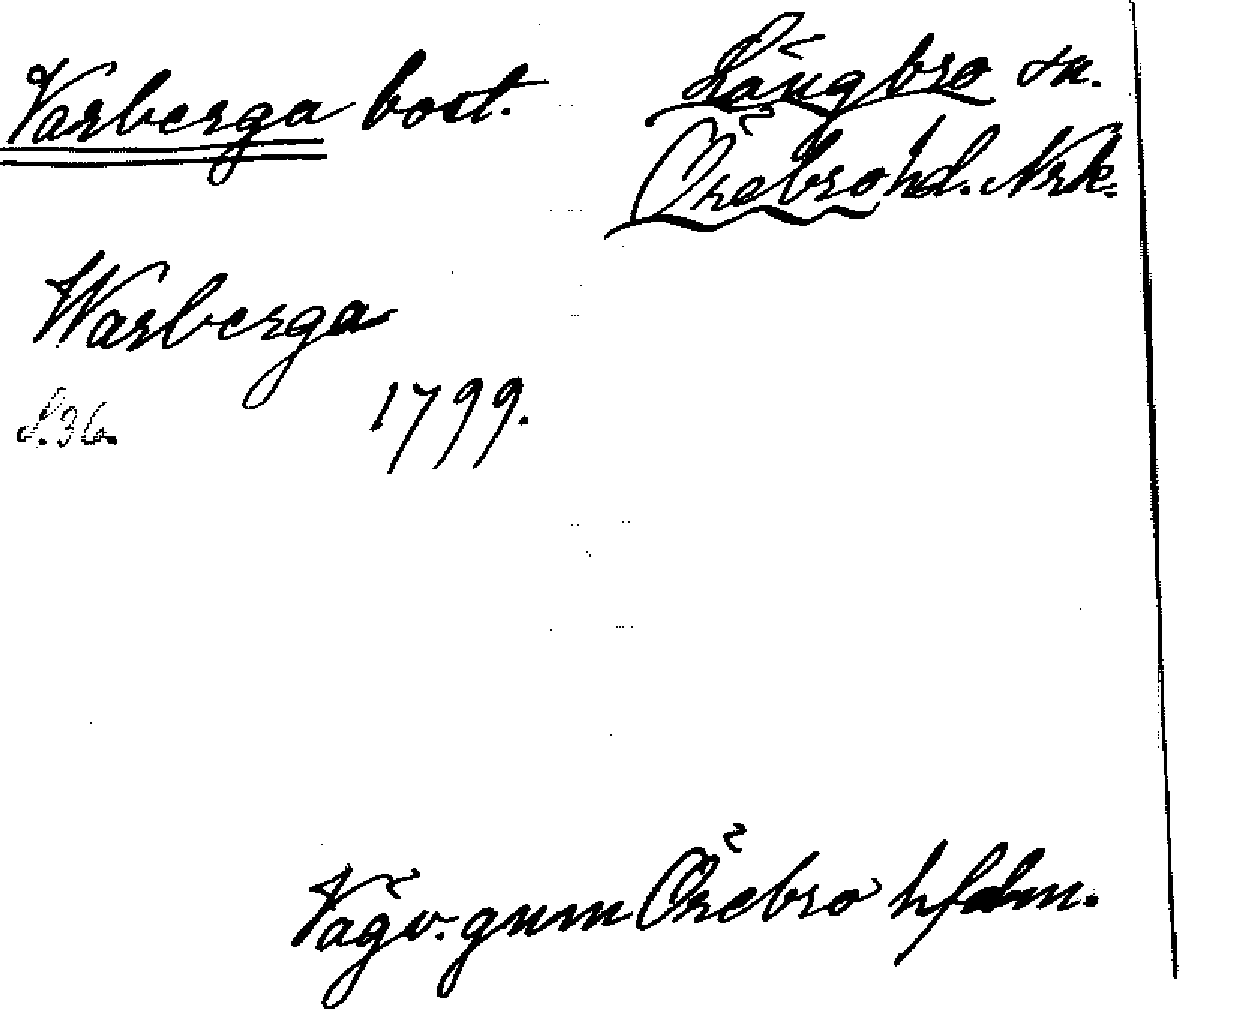 Varberga bost. Längbro sn.
Örebro hd. Nrk.
Warberga
S. 36. 1799.
Vägv. gnm Örebro hfdm.